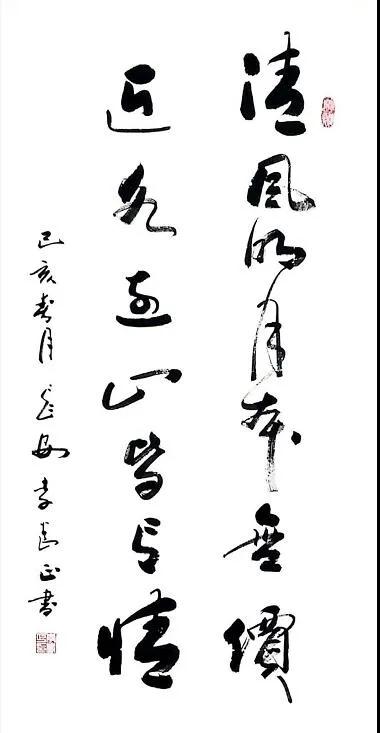 清風明月本無價
近水遠山皆有情
己亥春月長安李正書